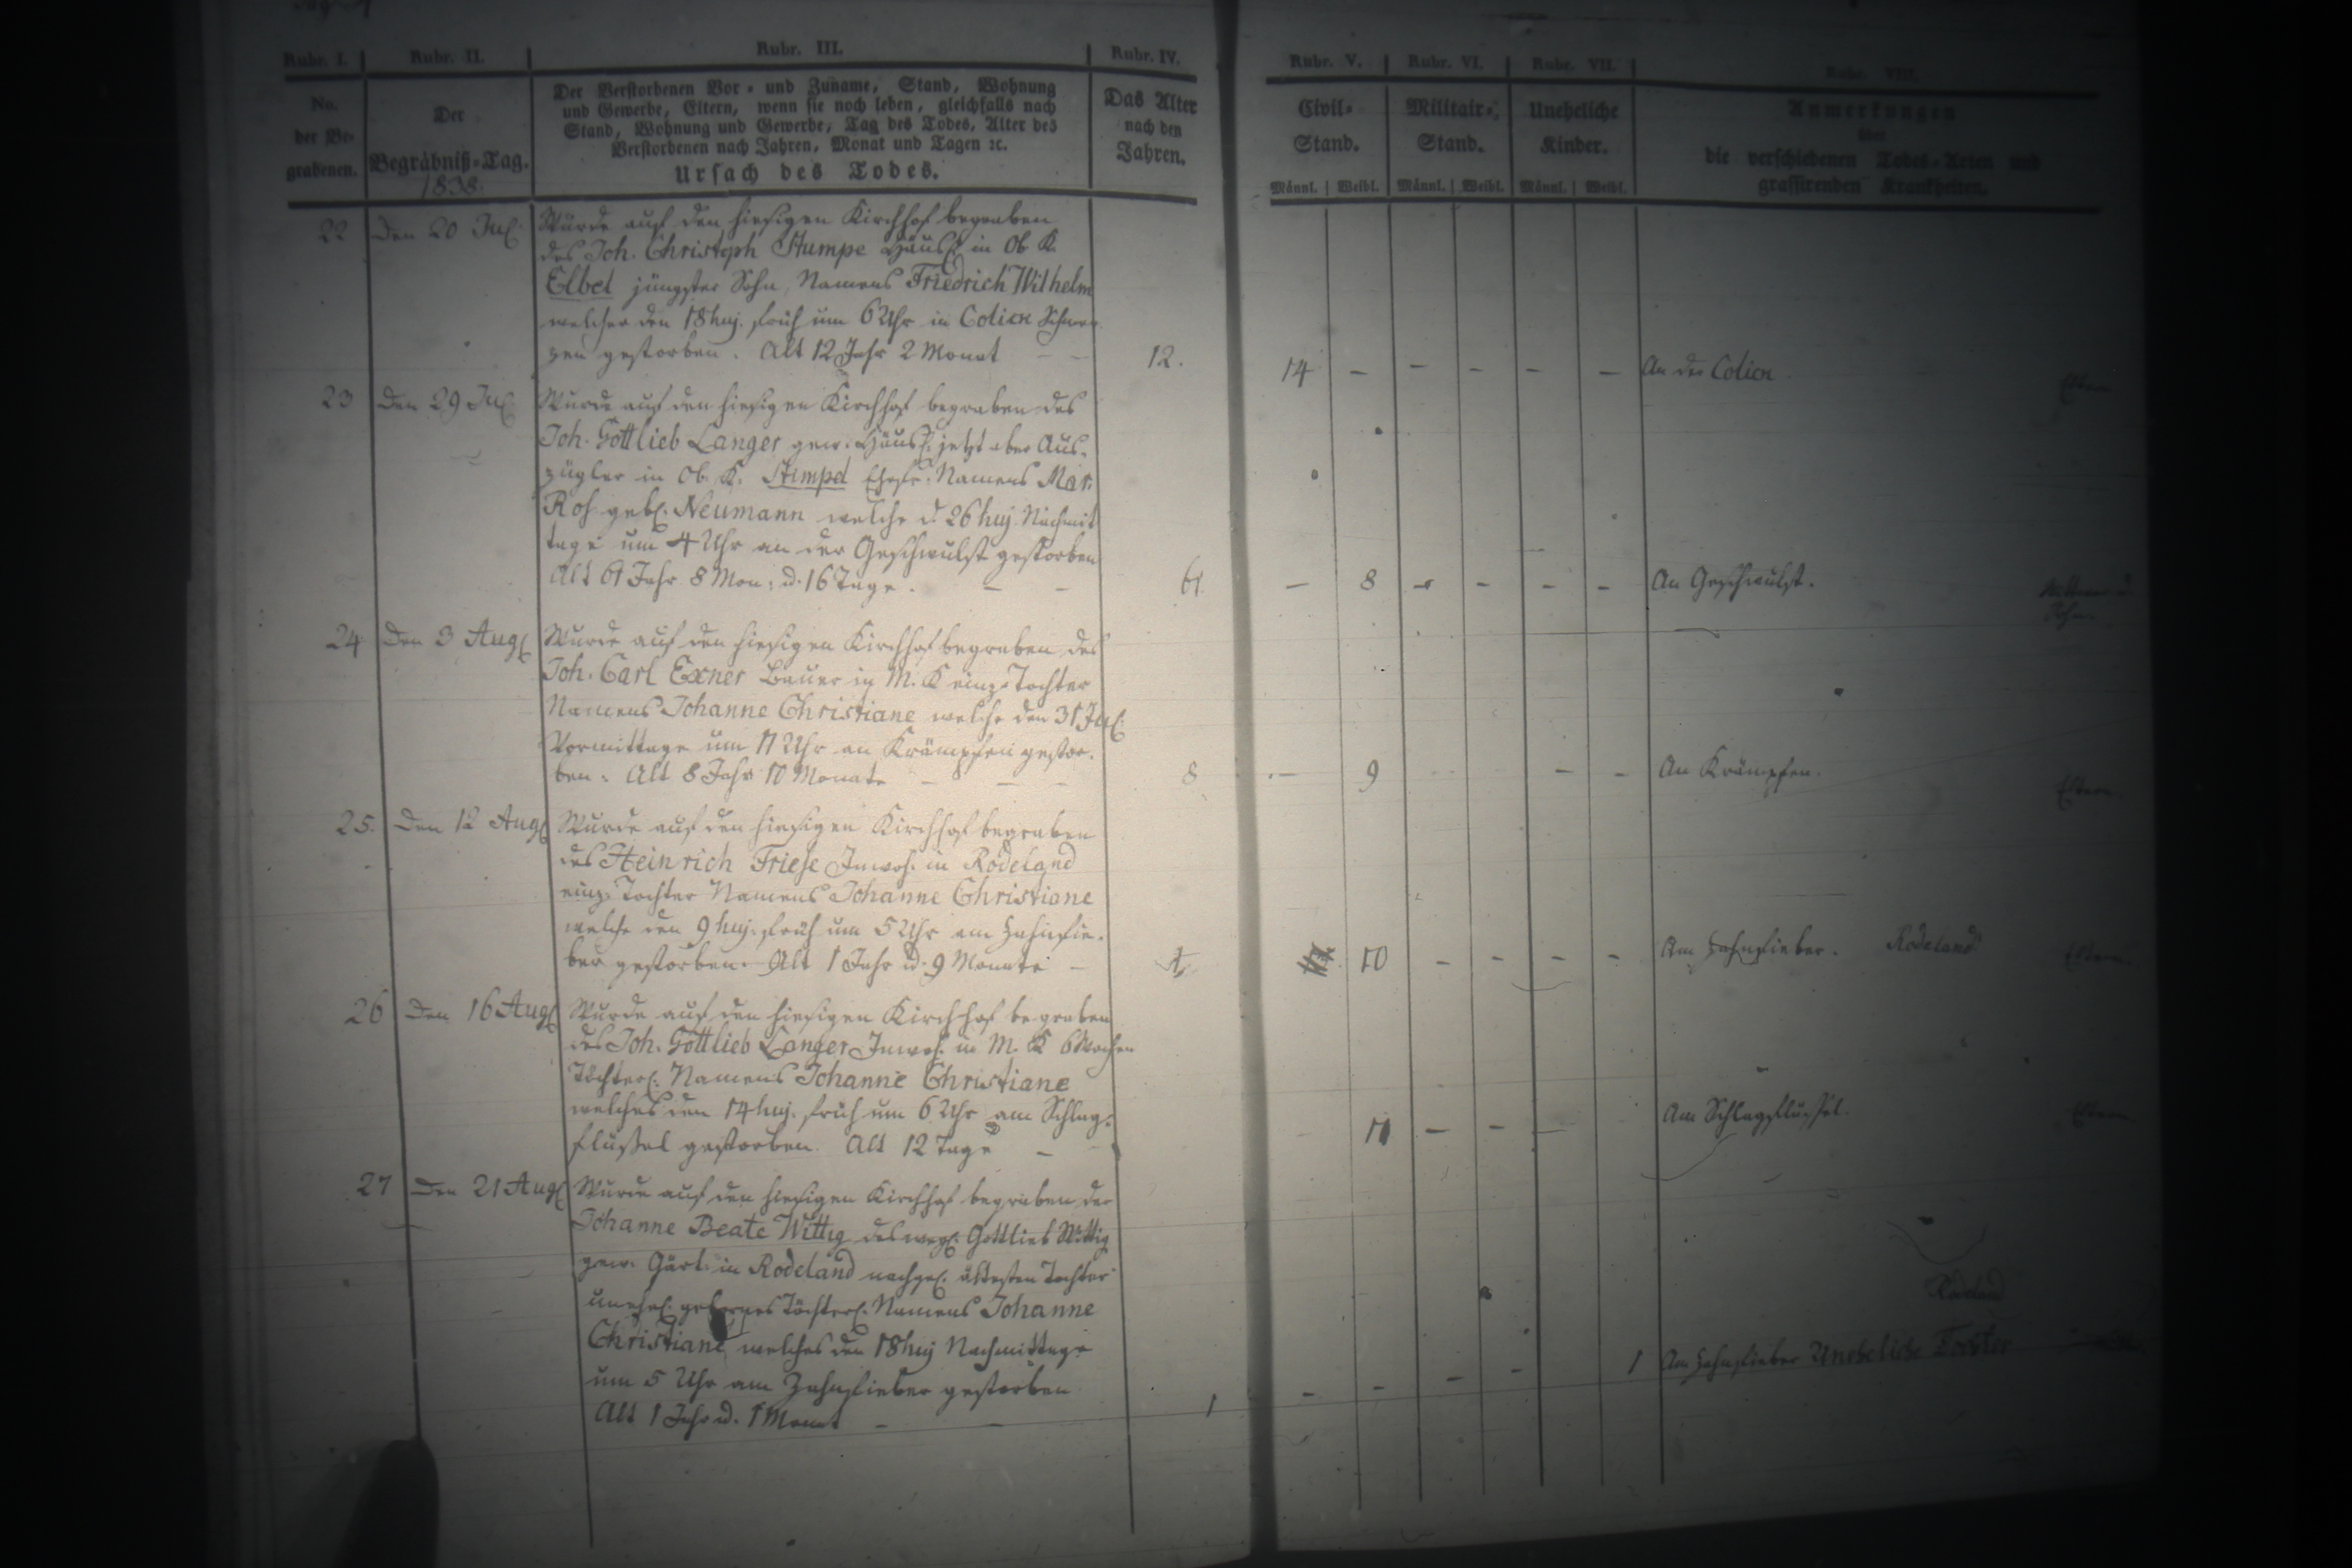 Rubr. I. Rubr. II. Rubr. III. Rubr. IV. Rubr. V. Rubr. VI. Rubr. VII. Rubr. VIII.
No.
der Be-
grabenen.
Der
Begräbniß-Tag.
1838.
Der Verstorbenen Vor- und Zuname, Stand, Wohnung
und Gewerbe, Eltern, wenn sie noch leben, gleichfalls nach
Stand, Wohnung und Gewerbe, Tag des Todes, Alter des
Verstorbenen nach Jahren, Monat und Tagen ꝛc.
Ursach des Todes.
Das Alter
nach den
Jahren.
Civil-
Stand.
Militair-
Stand.
Uneheliche
Kinder.
Anmerkungen
über
die verschiedenen Todes-Arten und
grassirenden Krankheiten.
Männl. Weibl. Männl. Weibl. Männl. Weibl.
22 Den 20 Jul. Wurde auf den hiesigen Kirchhof begraben
des Joh. Christoph Stumpe Häusl. in Ob K.
Elbel jüngster Sohn, Namens Friedrich Wilhelm
welcher den 18 huj. früh um 6 Uhr in Colick Schmer-
zen gestorben. Alt 12 Jahr 2 Monat – – 12. 14 – – – – – An der Colick Eltern
23 Den 29 Jul. Wurde auf den hiesigen Kirchhof begraben des
Joh. Gottlieb Langer gew. Häusl. jetzt aber Aus-
zügler in Ob. K. Stimpel Ehefr. Namens Mar.
Ros. gebl. Neumann welche d. 26 huj Nachmit
tage um 4 Uhr an der Geschwulst gestorben
Alt 61 Jahr 8 Mon: u. 16 Tage. – – 61. – 8 – – – – An Geschwulst.
24 Den 3 Aug. Wurde auf den hiesigen Kirchhof begraben des
Joh. Carl Exner Bauer in M. K einz. Tochter
Namens Johanne Christiane welche den 31 Jul.
Vormittage um 11 Uhr an Krämpfen gestor-
ben. Alt 8 Jahr 10 Monate – – – 8 – 9 – – An Krämpfen. Eltern.
25. Den 12 Aug. Wurde auf den hiesigen Kirchhof begraben
des Heinrich Friese Inwoh. in Rodeland
einz. Tochter Namens Johanne Christiane
welche den 9 huj. früh um 5 Uhr am Zahnfie-
ber gestorben. Alt 1 Jahr u. 9 Monate – 1 10 – – – – Am Zahnfieber. Rodeland Eltern
26 Den 16 Aug. Wurde auf den hiesigen Kirchhof begraben
des Joh. Gottlieb Langer Inwoh. in M. K 6 Wochen
Töchterl. Namens Johanne Christiane
welches den 14 huj. früh um 6 Uhr am Schlag-
flussel gestorben. Alt 12 Tage – – 11 – – – Am Schlagflussel. Eltern
27 Den 21 Aug. Wurde auf den hiesigen Kirchhof begraben der
Johanne Beate Wittig des Gottlieb Wittig
gew. Gärt. in Rodeland nachgel. ältesten Tochter
unehel. gebornes Töchterl. Namens Johanne
Christiane welches den 18 huj Nachmittage
um 5 Uhr am Zahnfieber gestorben
Alt 1 Jahr u. 1 Monat – – 1 – – – – 1 Am Zahnfieber Uneheliche Tochter
Rodeland